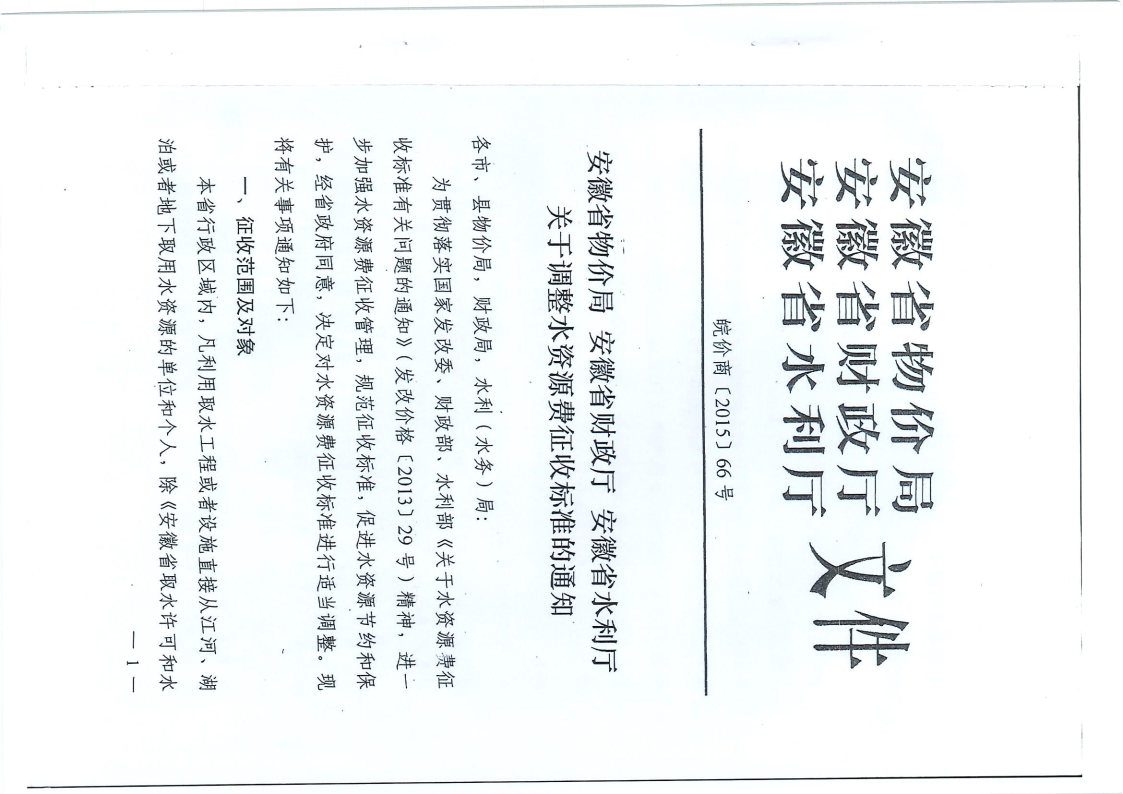 安徽省物价局
安徽省财政厅 文件
安徽省水利厅
皖价商〔2015〕66号
安徽省物价局 安徽省财政厅 安徽省水利厅
关于调整水资源费征收标准的通知
各市、县物价局，财政局，水利（水务）局：
为贯彻落实国家发改委、财政部、水利部《关于水资源费征
收标准有关问题的通知》（发改价格〔2013〕29号）精神，进一
步加强水资源费征收管理，规范征收标准，促进水资源节约和保
护，经省政府同意，决定对水资源费征收标准进行适当调整。现
将有关事项通知如下：
一、征收范围及对象
本省行政区域内，凡利用取水工程或者设施直接从江河、湖
泊或者地下取用水资源的单位和个人，除《安徽省取水许可和水
— 1 —